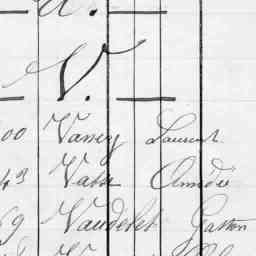 U.
V.
00 Vanney Laurent
43 Vatin Amédée
69 Vaudelet Gaston